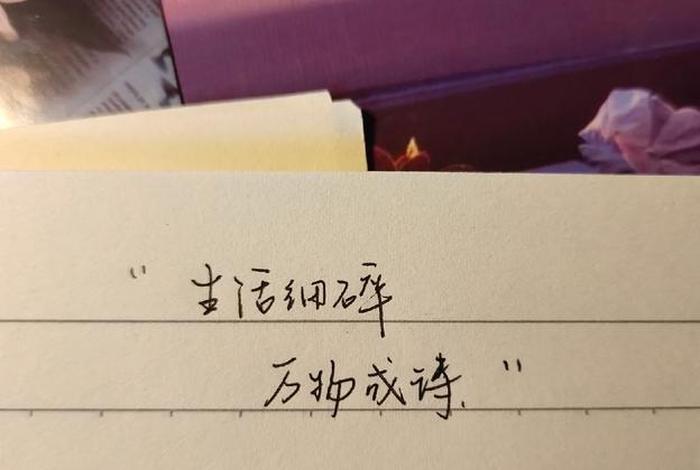 “生活细碎
万物成诗.”